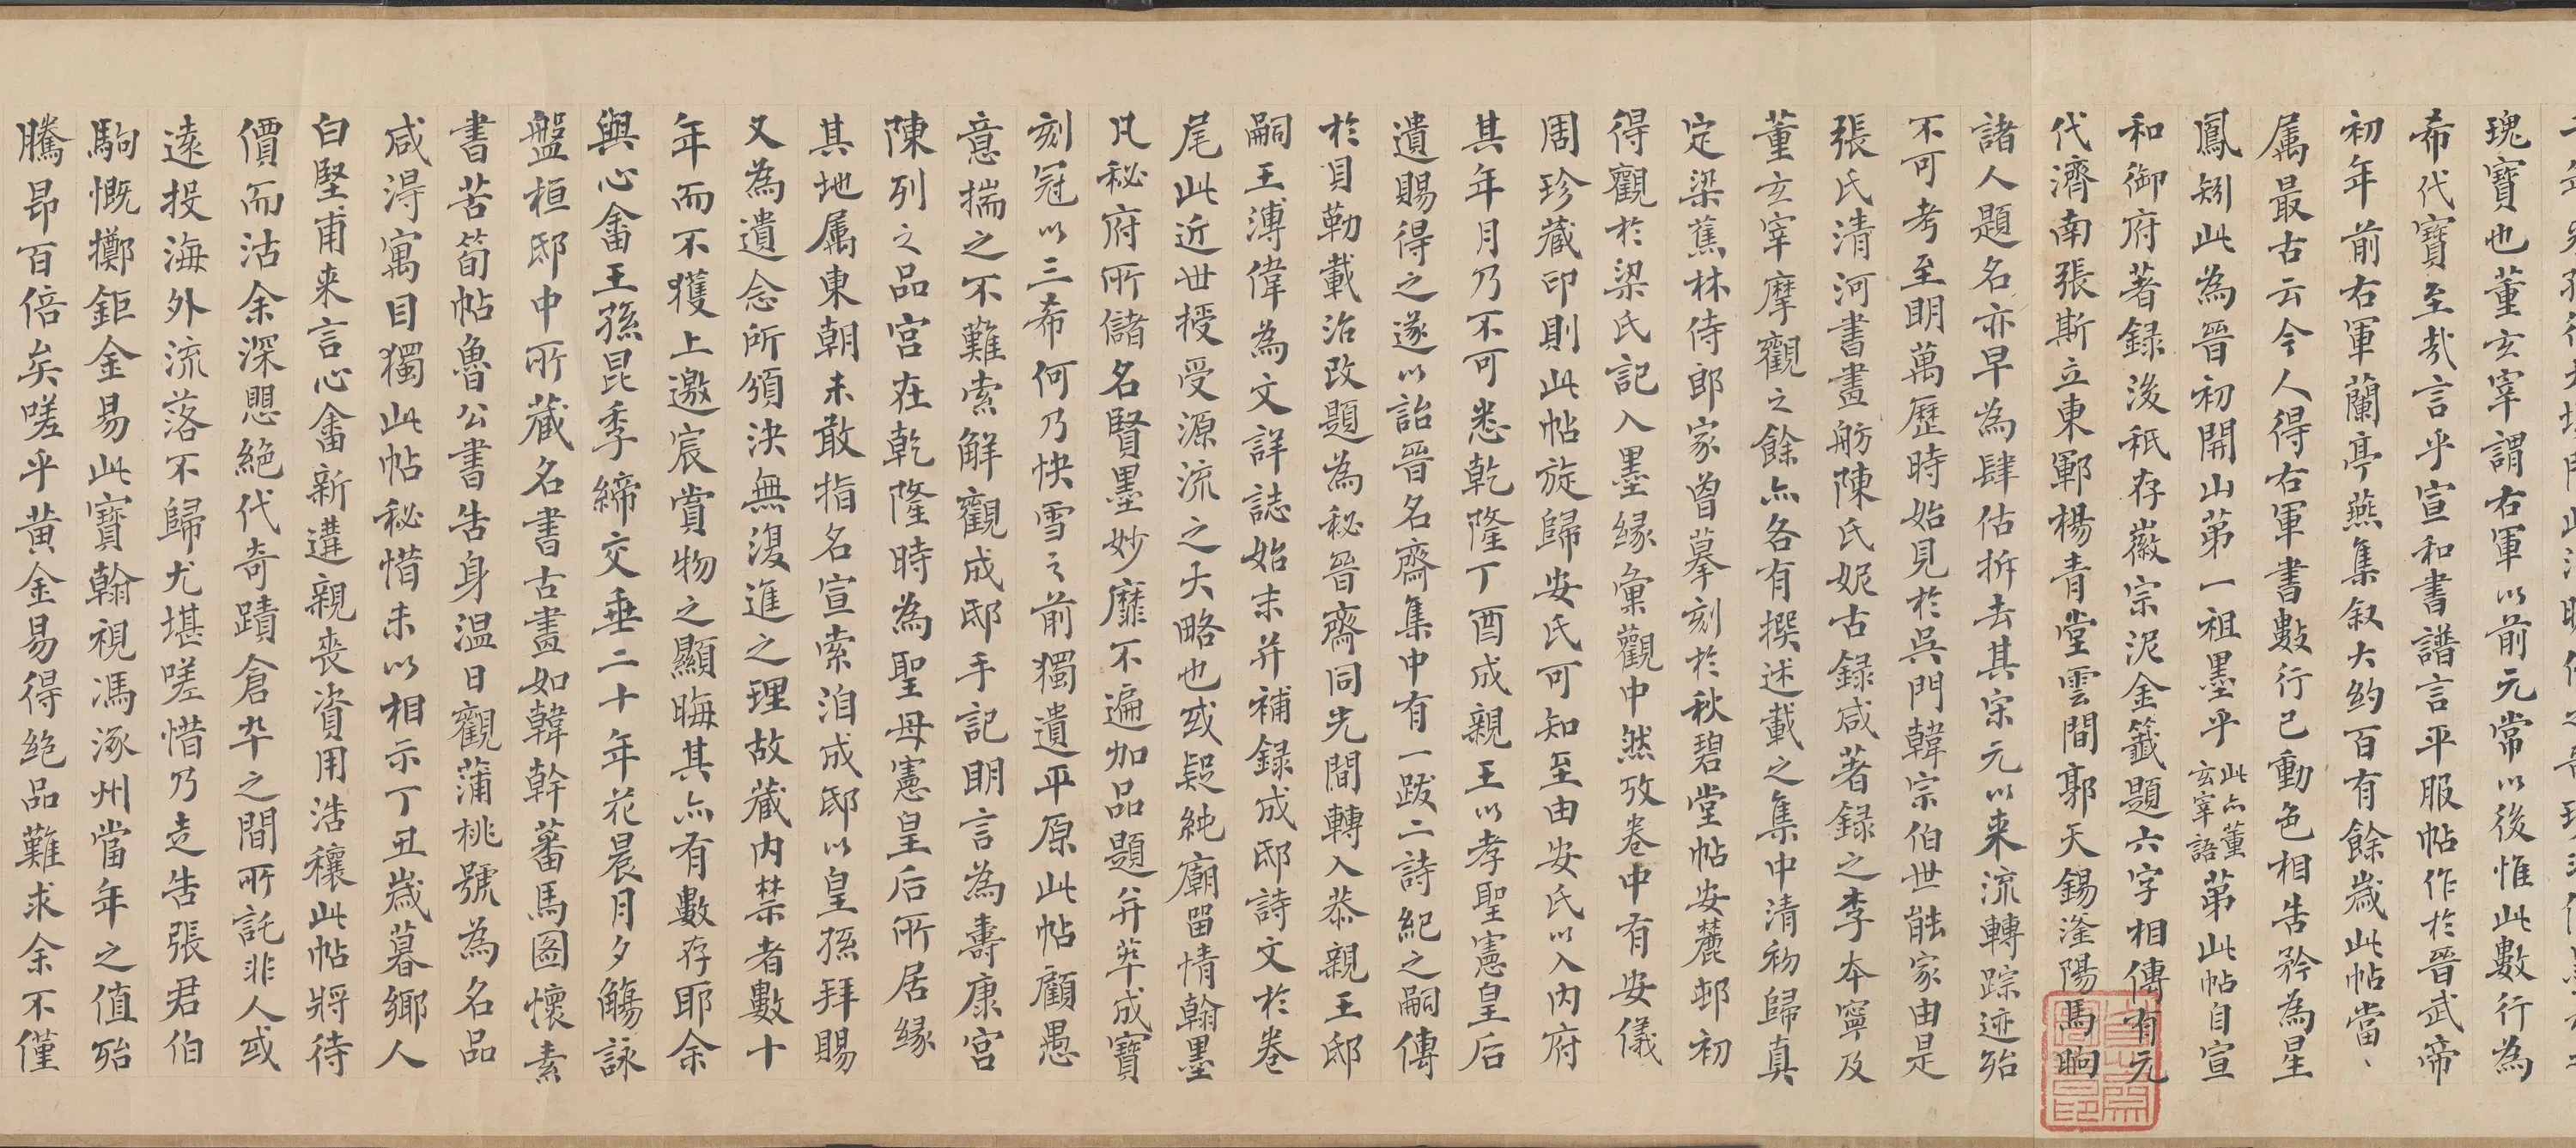 瑰寶也董玄宰謂右軍以前元常以後惟此數行為
希代寶至哉言乎宣和書譜言平服帖作於晉武帝
初年前右軍蘭亭燕集叙大約百有餘歲此帖當、
属最古云今人得右軍書數行已動色相告矜為星
鳳矧此為晉初開山第一祖墨乎此亦董玄宰語第此帖自宣
和御府著録後秖存徽宗泥金籤題六字相傳有元
代濟南張斯立東鄆楊青堂雲間郭天錫滏陽馬晌
諸人題名亦早為肆估拆去其宋元以来流轉踪迹殆
不可考至明萬歷時始見於吳門韓宗伯世能家由是
張氏清河書畫舫陳氏妮古録咸著録之李夲寧及
董玄宰摩觀之餘亦各有撰述載之集中清初歸真
定梁蕉林侍郎家曾摹刻於秋碧堂帖安麓邨初
得觀於梁氏記入墨緣彙觀中然攷卷中有安儀
周珍藏印則此帖旋歸安氏可知至由安氏以入内府
其年月乃不可悉乾隆丁酉成親王以孝聖憲皇后
遺賜得之遂以詒晉名齋集中有一跋二詩紀之嗣傳
於貝勒載治改題為秘晉齋同光間轉入恭親王邸
嗣王溥偉為文詳誌始末并補録成邸詩文於卷
尾此近世授受源流之大略也或疑純廟留情翰墨
凡秘府所儲名賢墨妙靡不遍加品題并萃成寶
刻冠以三希何乃快雪之前獨遺平原此帖顧愚
意揣之不難索解觀成邸手記明言為壽康宮
陳列之品宮在乾隆時為聖母憲皇后所居緣
其地属東朝未敢指名宣索洎成邸以皇孫拜賜
又為遺念所頒決無復進之理故藏内禁者數十
年而不獲上邀宸賞物之顯晦其亦有數存耶余
與心畬王孫昆季締交垂二十年花晨月夕觴詠
盤桓邸中所藏名書古畫如韓幹蕃馬圖懷素
書苦筍帖魯公書告身温日觀蒲桃號為名品
咸得寓目獨此帖秘惜未以相示丁丑歲暮鄉人
白堅甫来言心畬新遘親丧資用浩穰此帖將待
價而沽余深惧絶代奇蹟倉卒之間所託非人或
遠投海外流落不歸尤堪嗟惜乃走告張君伯
駒慨擲鉅金易此寶翰視馮涿州當年之值殆
騰昂百倍矣嗟乎黄金易得绝品難求余不僅